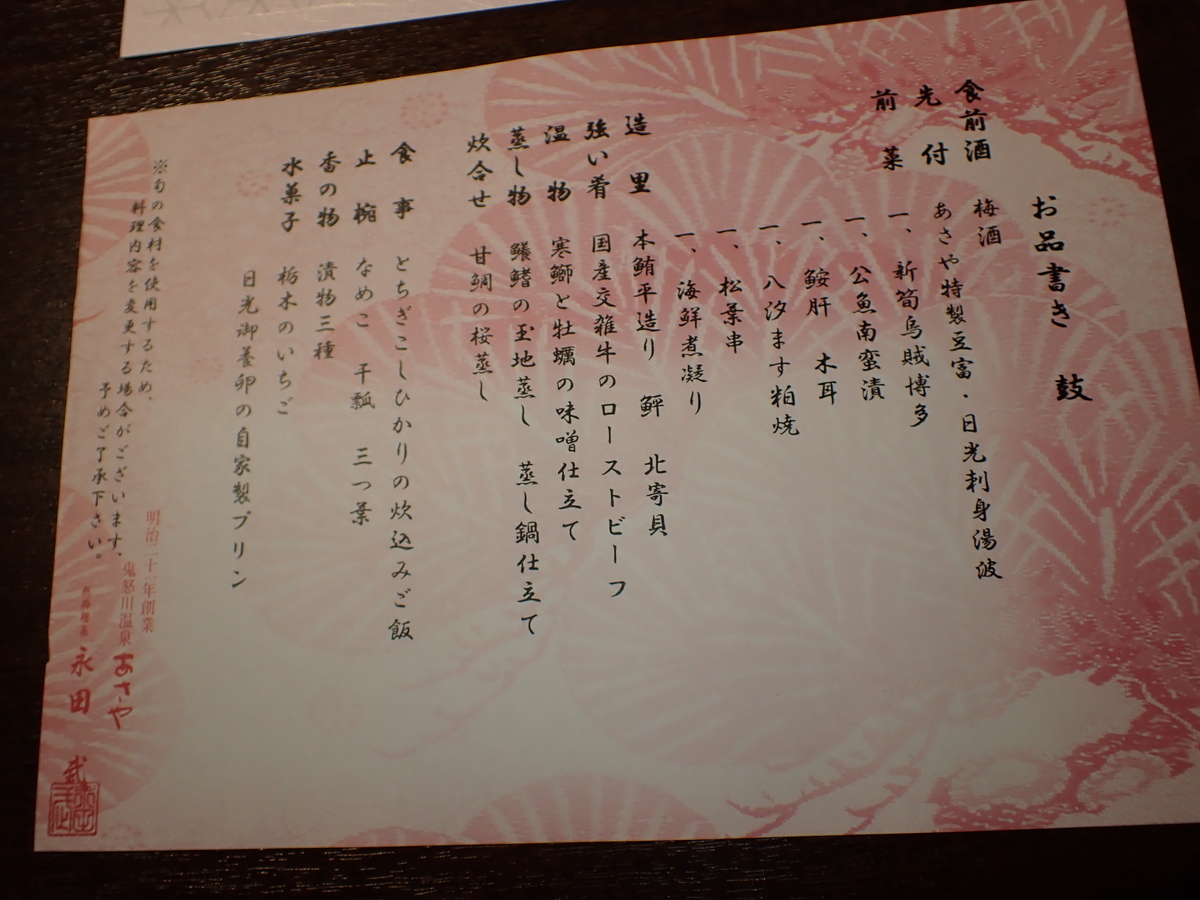 お品書き　鼓
食前酒　梅酒
先付　あさや特製豆富・日光刺身湯波
前菜　一、新筍烏賊博多
一、公魚南蛮漬
一、鮟肝　木耳
一、八汐ます粕焼
一、松葉串
一、海鮮煮凝り
造里　本鮪平造り　鮃　北寄貝
強い肴　国産交雑牛のローストビーフ
温物　寒鰤と牡蠣の味噌仕立て
蒸し物　鱶鰭の玉地蒸し　蒸し鍋仕立て
炊合せ　甘鯛の桜蒸し
食事　とちぎこしひかりの炊込みご飯
止椀　なめこ　干瓢　三つ葉
香の物　漬物三種
水菓子　栃木のいちご
日光御養卵の自家製プリン
※旬の食材を使用するため、
料理内容を変更する場合がございます。
予めご了承下さい。
明治二十一年創業
鬼怒川温泉　あさや
永田　武